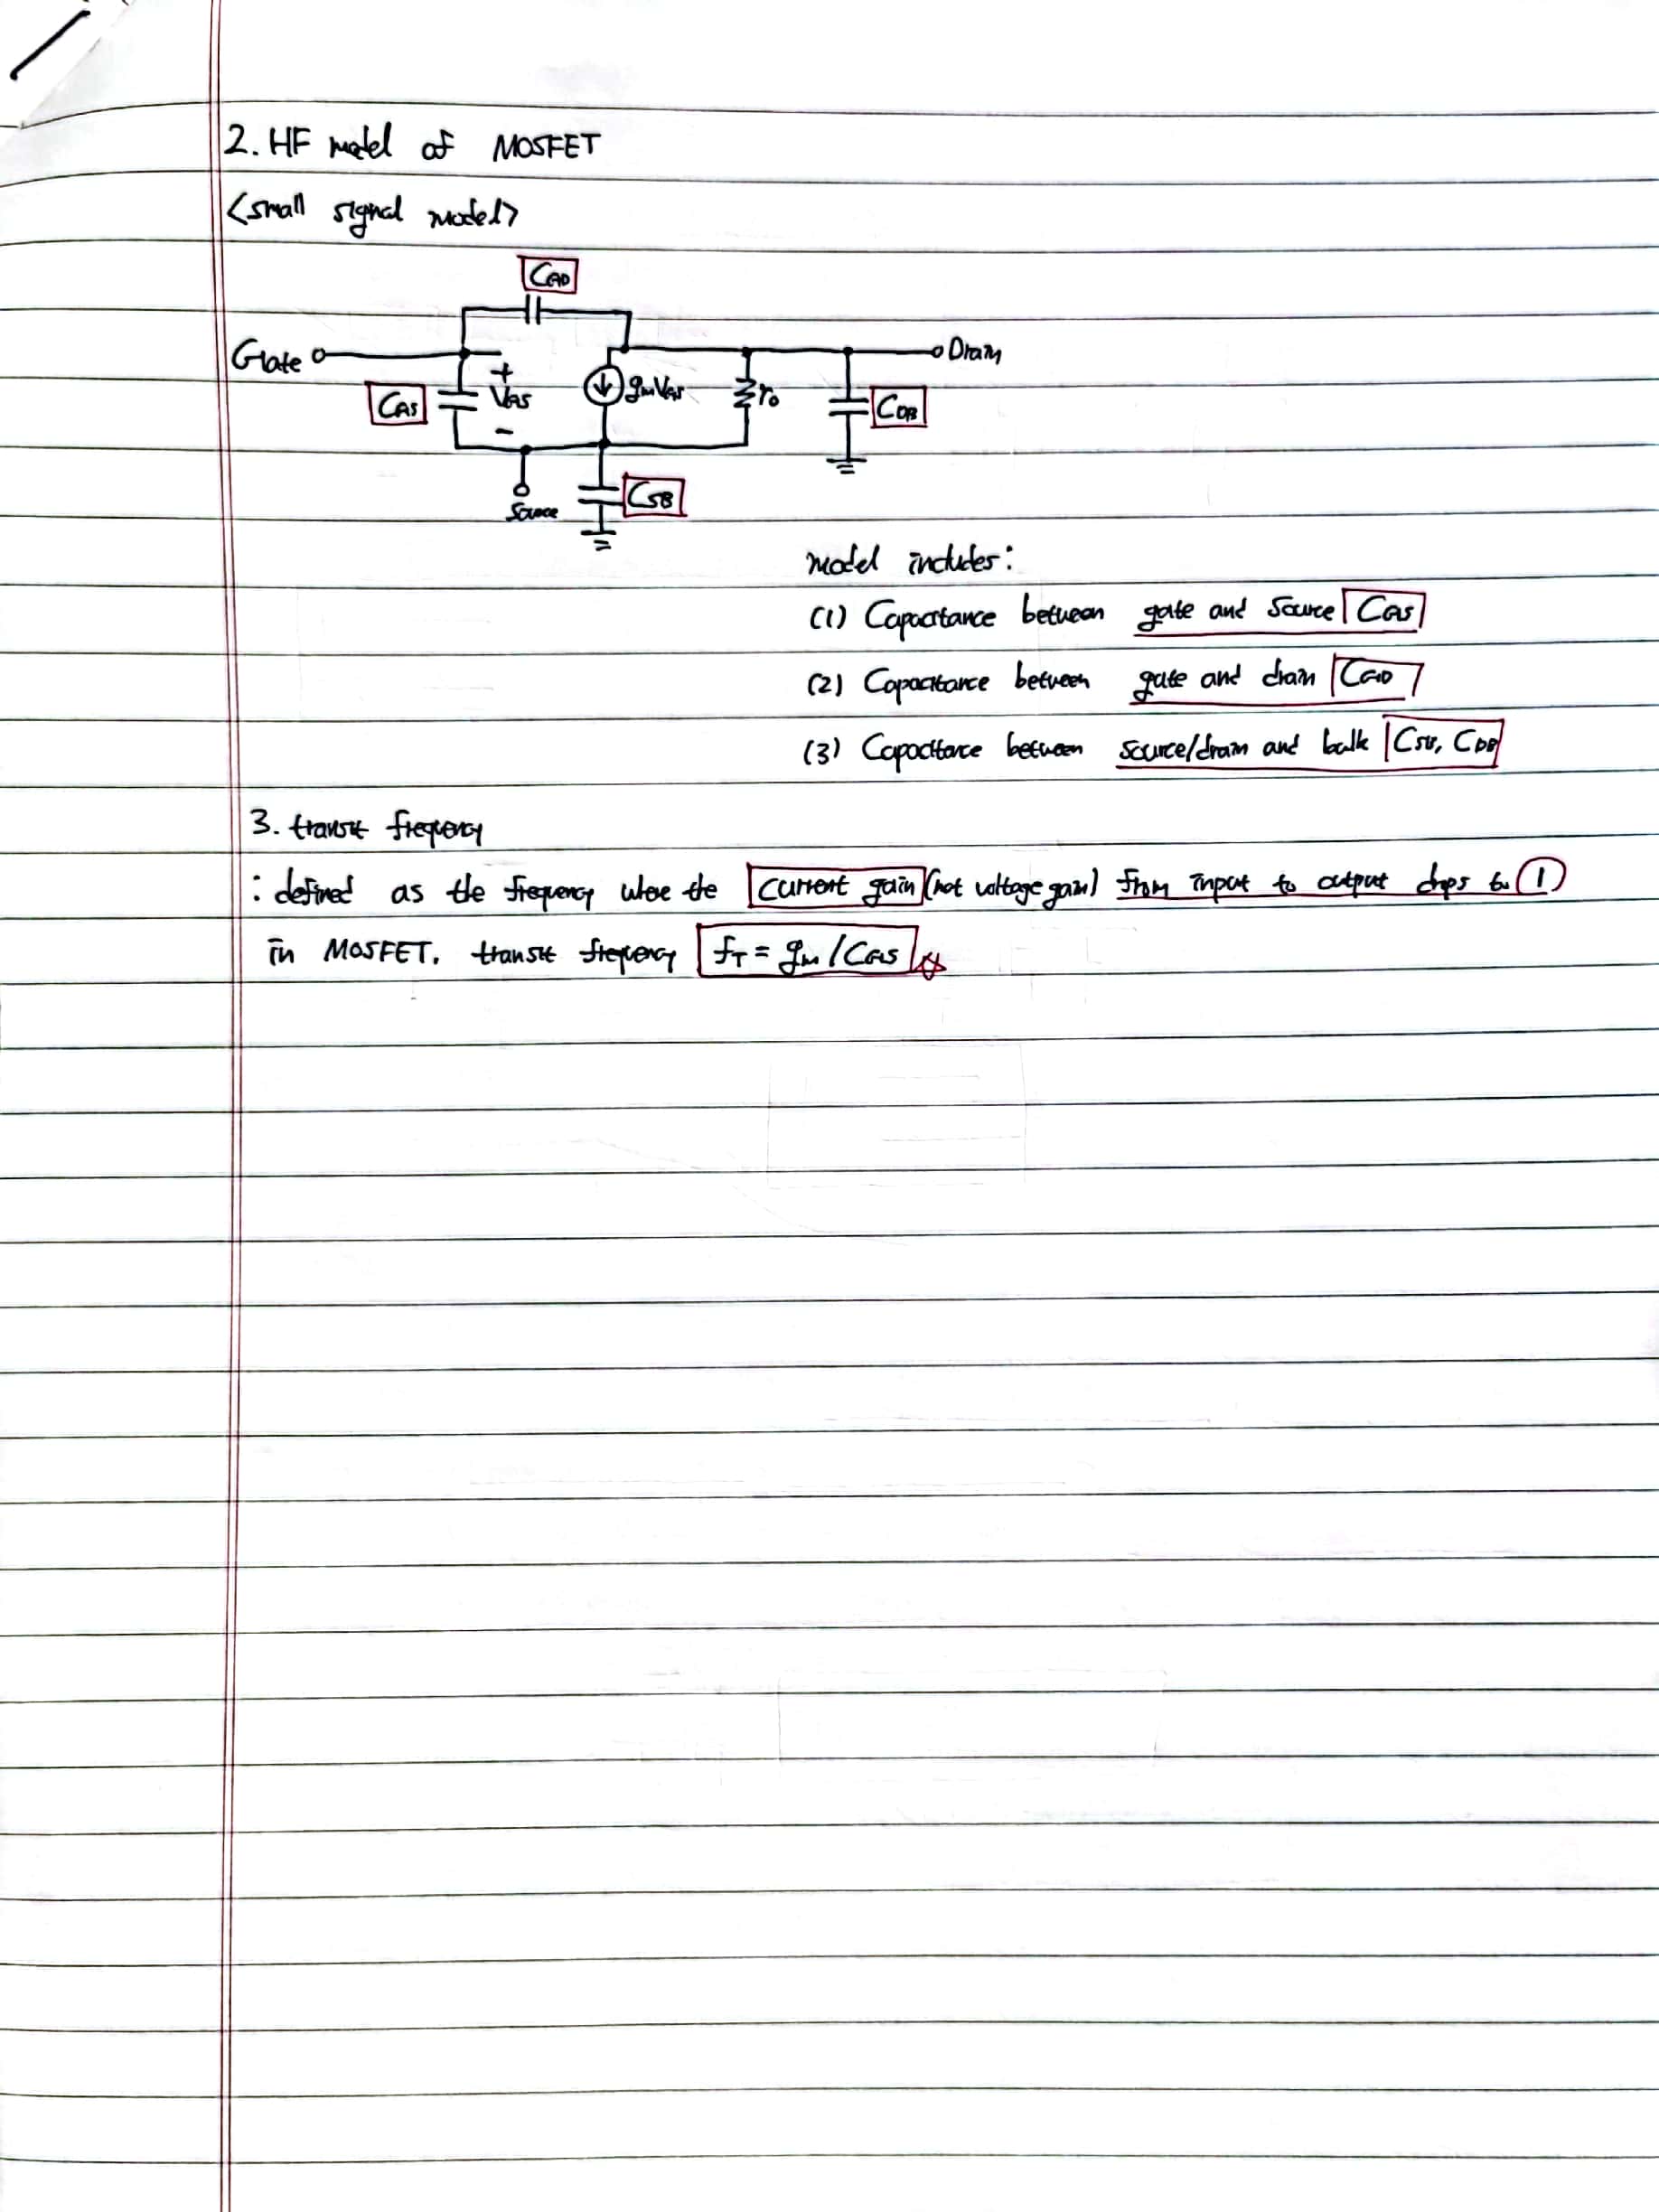 2. HF model of MOSFET
<small signal model>
CGD
Gate
Drain
+
CGS
VGS
gmVGS
ro
CDB
-
Source
CSB
model includes:
(1) Capacitance between gate and source CGS
(2) Capacitance between gate and drain CGD
(3) Capacitance between source/drain and bulk CSB, CDB
3. transit frequency
: defined as the frequency where the current gain (not voltage gain) from input to output drops to 1
in MOSFET. transit frequency fT = gm/CGS